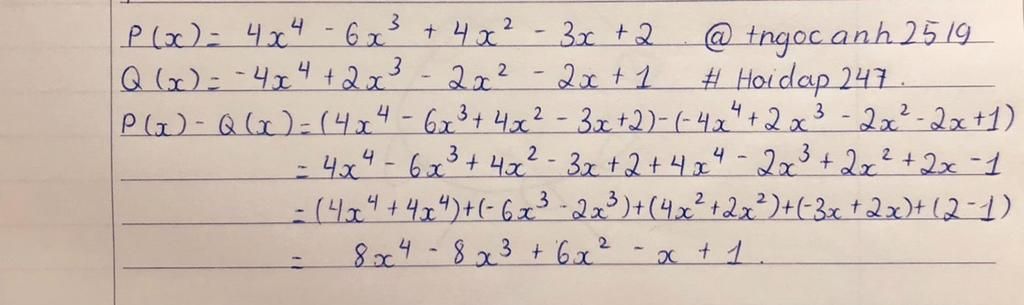 P(x) = 4x⁴ - 6x³ + 4x² - 3x + 2 @ tngocanh2519
Q(x) = -4x⁴ + 2x³ - 2x² - 2x + 1 # Hoidap247.
P(x) - Q(x) = (4x⁴ - 6x³ + 4x² - 3x + 2) - (-4x⁴ + 2x³ - 2x² - 2x + 1)
= 4x⁴ - 6x³ + 4x² - 3x + 2 + 4x⁴ - 2x³ + 2x² + 2x - 1
= (4x⁴ + 4x⁴) + (-6x³ - 2x³) + (4x² + 2x²) + (-3x + 2x) + (2 - 1)
= 8x⁴ - 8x³ + 6x² - x + 1.